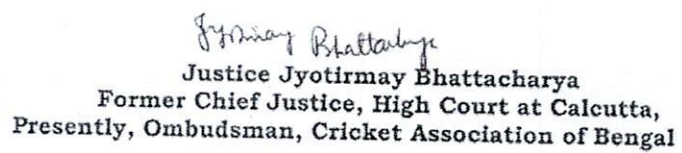 Jyotirmay Bhattacharya
Justice Jyotirmay Bhattacharya
Former Chief Justice, High Court at Calcutta,
Presently, Ombudsman, Cricket Association of Bengal